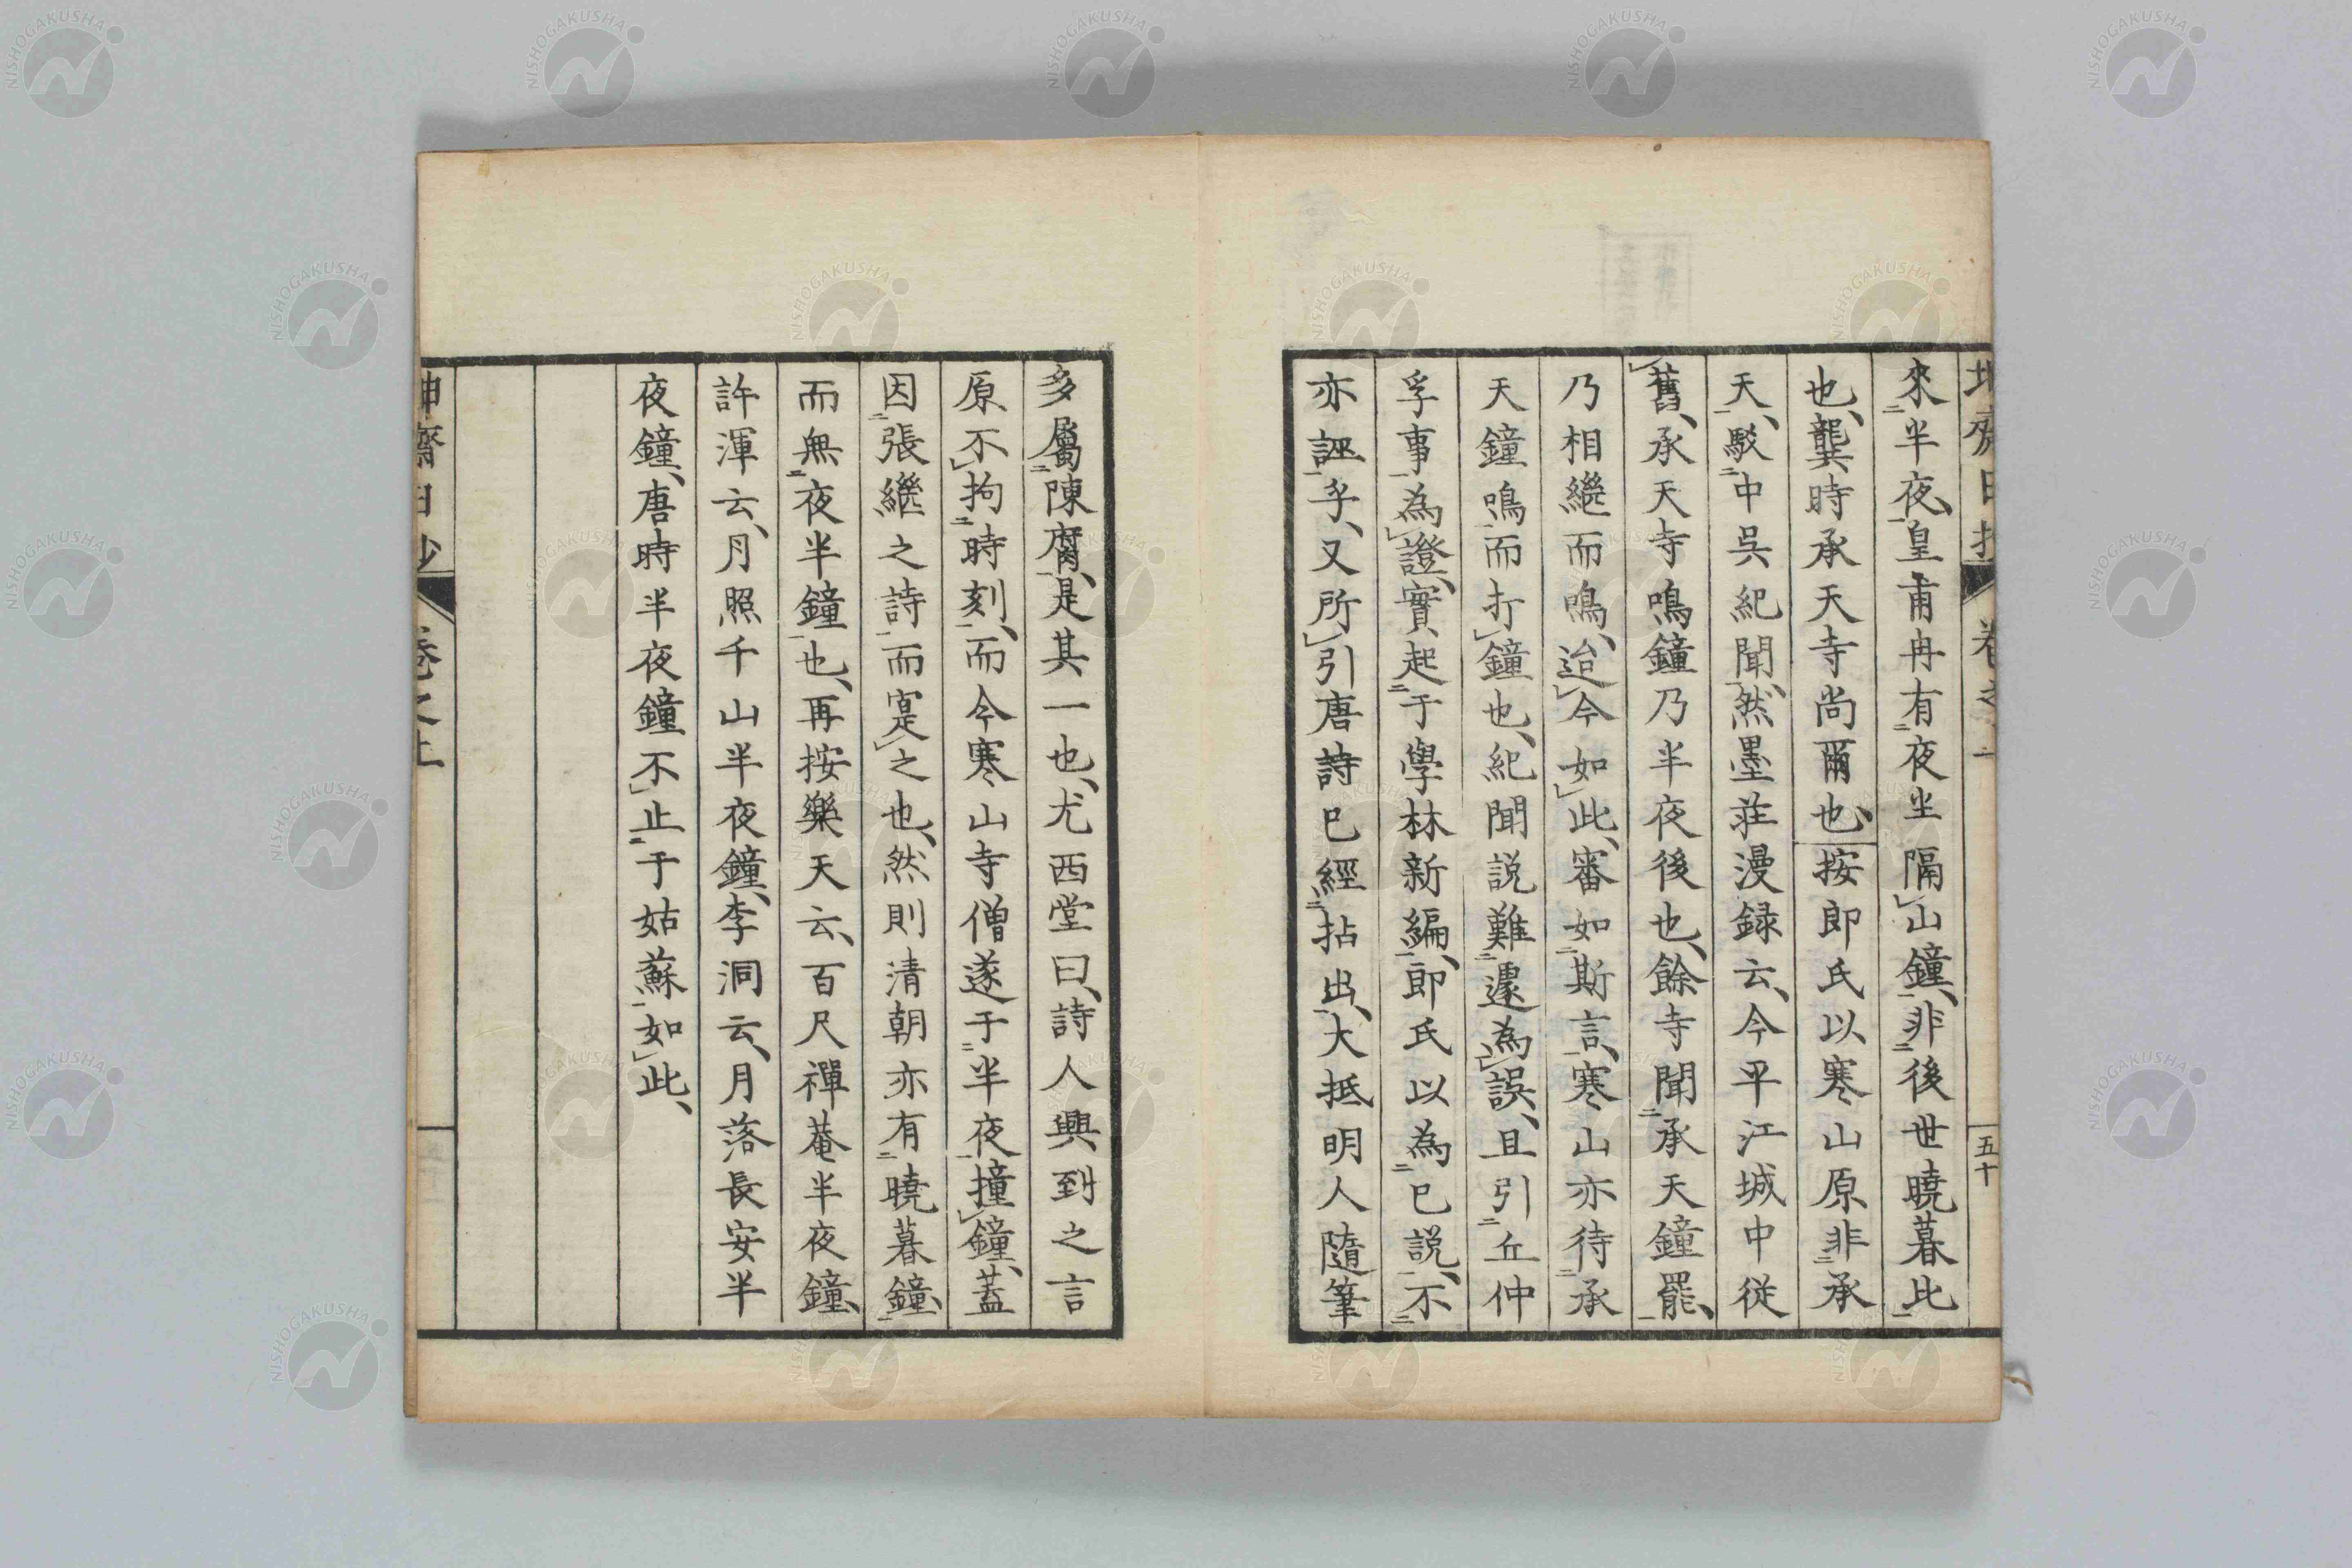 來半夜、皇甫冉有夜坐隔山鐘、非後世曉暮比
也、龔時承天寺尚爾也、按郎氏以寒山原非承
天、駁中吳紀聞、然墨莊漫録云、今平江城中從
舊、承天寺鳴鐘乃半夜後也、餘寺聞承天鐘罷、
乃相繼而鳴、迨今如此、審如斯言、寒山亦待承
天鐘鳴而打鐘也、紀聞説難遽為誤、且引丘仲
孚事為證、實起于學林新編、郎氏以為已説、不
亦誣乎、又所引唐詩已經拈出、大抵明人隨筆
五十
多屬陳腐、是其一也、尤西堂曰、詩人興到之言
原不拘時刻、而今寒山寺僧遂于半夜撞鐘、蓋
因張繼之詩而寔之也、然則清朝亦有曉暮鐘
而無夜半鐘也、再按樂天云、百尺禪菴半夜鐘、
許渾云、月照千山半夜鐘、李洞云、月落長安半
夜鐘、唐時半夜鐘不止于姑蘇如此、
NISHOGAKUSHA